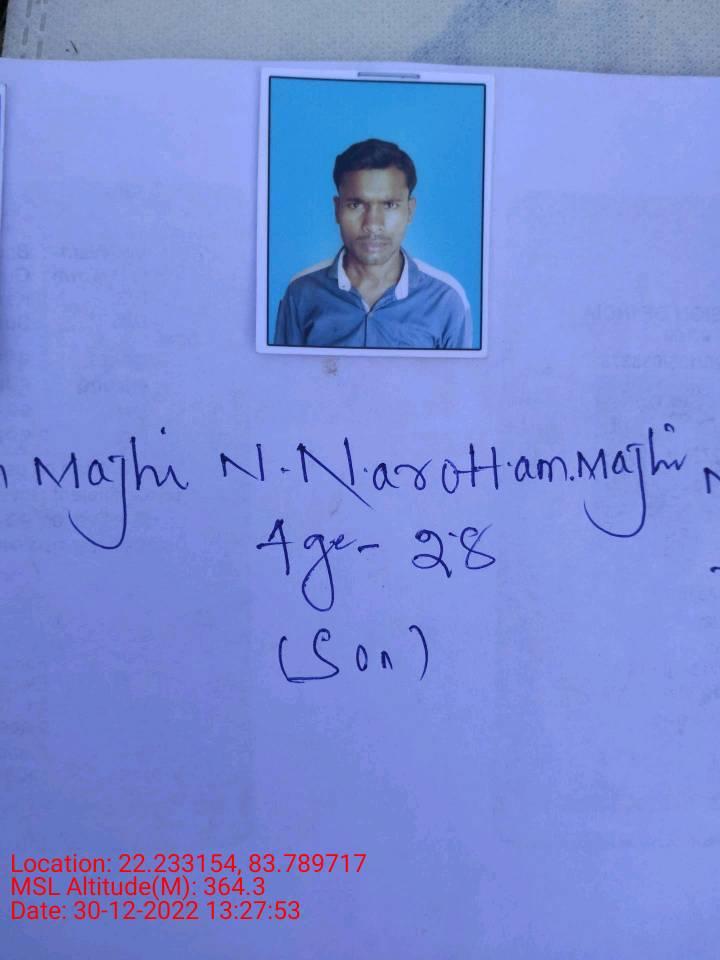 Majhi N. Narottam. Majhi
Age- 28
(Son)
Location: 22.233154, 83.789717
MSL Altitude(M): 364.3
Date: 30-12-2022 13:27:53